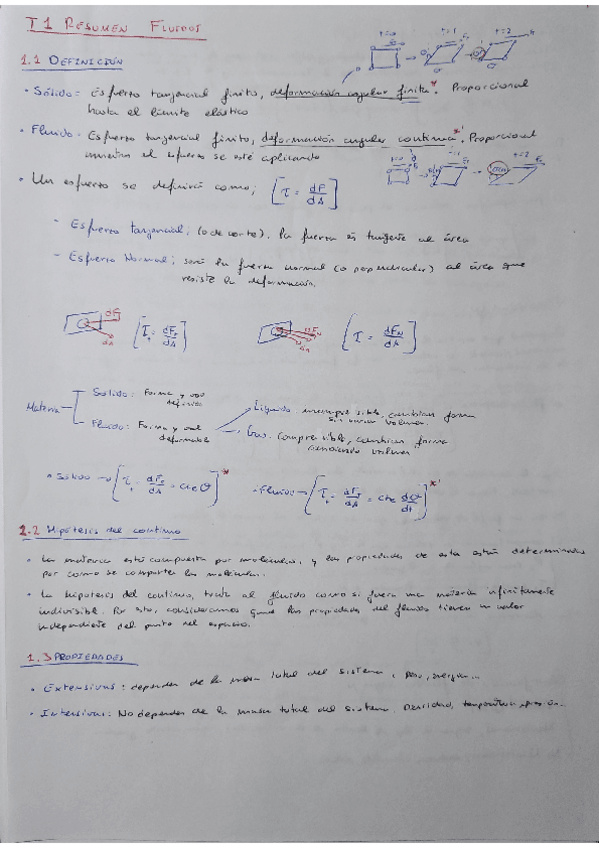 T1 RESUMEN FLUIDOS
t=0 t=1 t=2
1.1 DEFINICIÓN
• Sólido: Esfuerzo tangencial finito, deformación angular finita.* Proporcional
hasta el límite elástico
• Fluido: Esfuerzo tangencial finito, deformación angular continua*'. Proporcional
mientras el esfuerzo se esté aplicando
t=0 t=1 t=2
• Un esfuerzo se definirá como; [τ = dF/dA]
- Esfuerzo tangencial; (o de corte). La fuerza es tangente al área
- Esfuerzo Normal; será la fuerza normal (o perpendicular) al área que
resiste la deformación.
dF dA [τt = dFt/dA] dFN dA [τ = dFN/dA]
Materia
Sólido: Forma y vol definido
Fluido: Forma y vol deformable
Líquido: incompresible, cambian forma
sin variar volumen.
Gas: Compresible, cambian forma
cambiando volumen
• Sólido → [τt = dFt/dA = cte θ]* • Fluido → [τt = dFt/dA = cte dθ/dt]*'
1.2 Hipótesis del continuo
• La materia está compuesta por moléculas, y las propiedades de esta están determinadas
por como se comportan las moléculas.
• La hipótesis del continuo, trata al fluido como si fuera una materia infinitamente
indivisible. Por esto, consideramos que las propiedades del fluido tienen un valor
independiente del punto del espacio.
1.3 PROPIEDADES
• Extensivas: dependen de la masa total del sistema, peso, energía...
• Intensivas: No dependen de la masa total del sistema. Densidad, temperatura, presión...